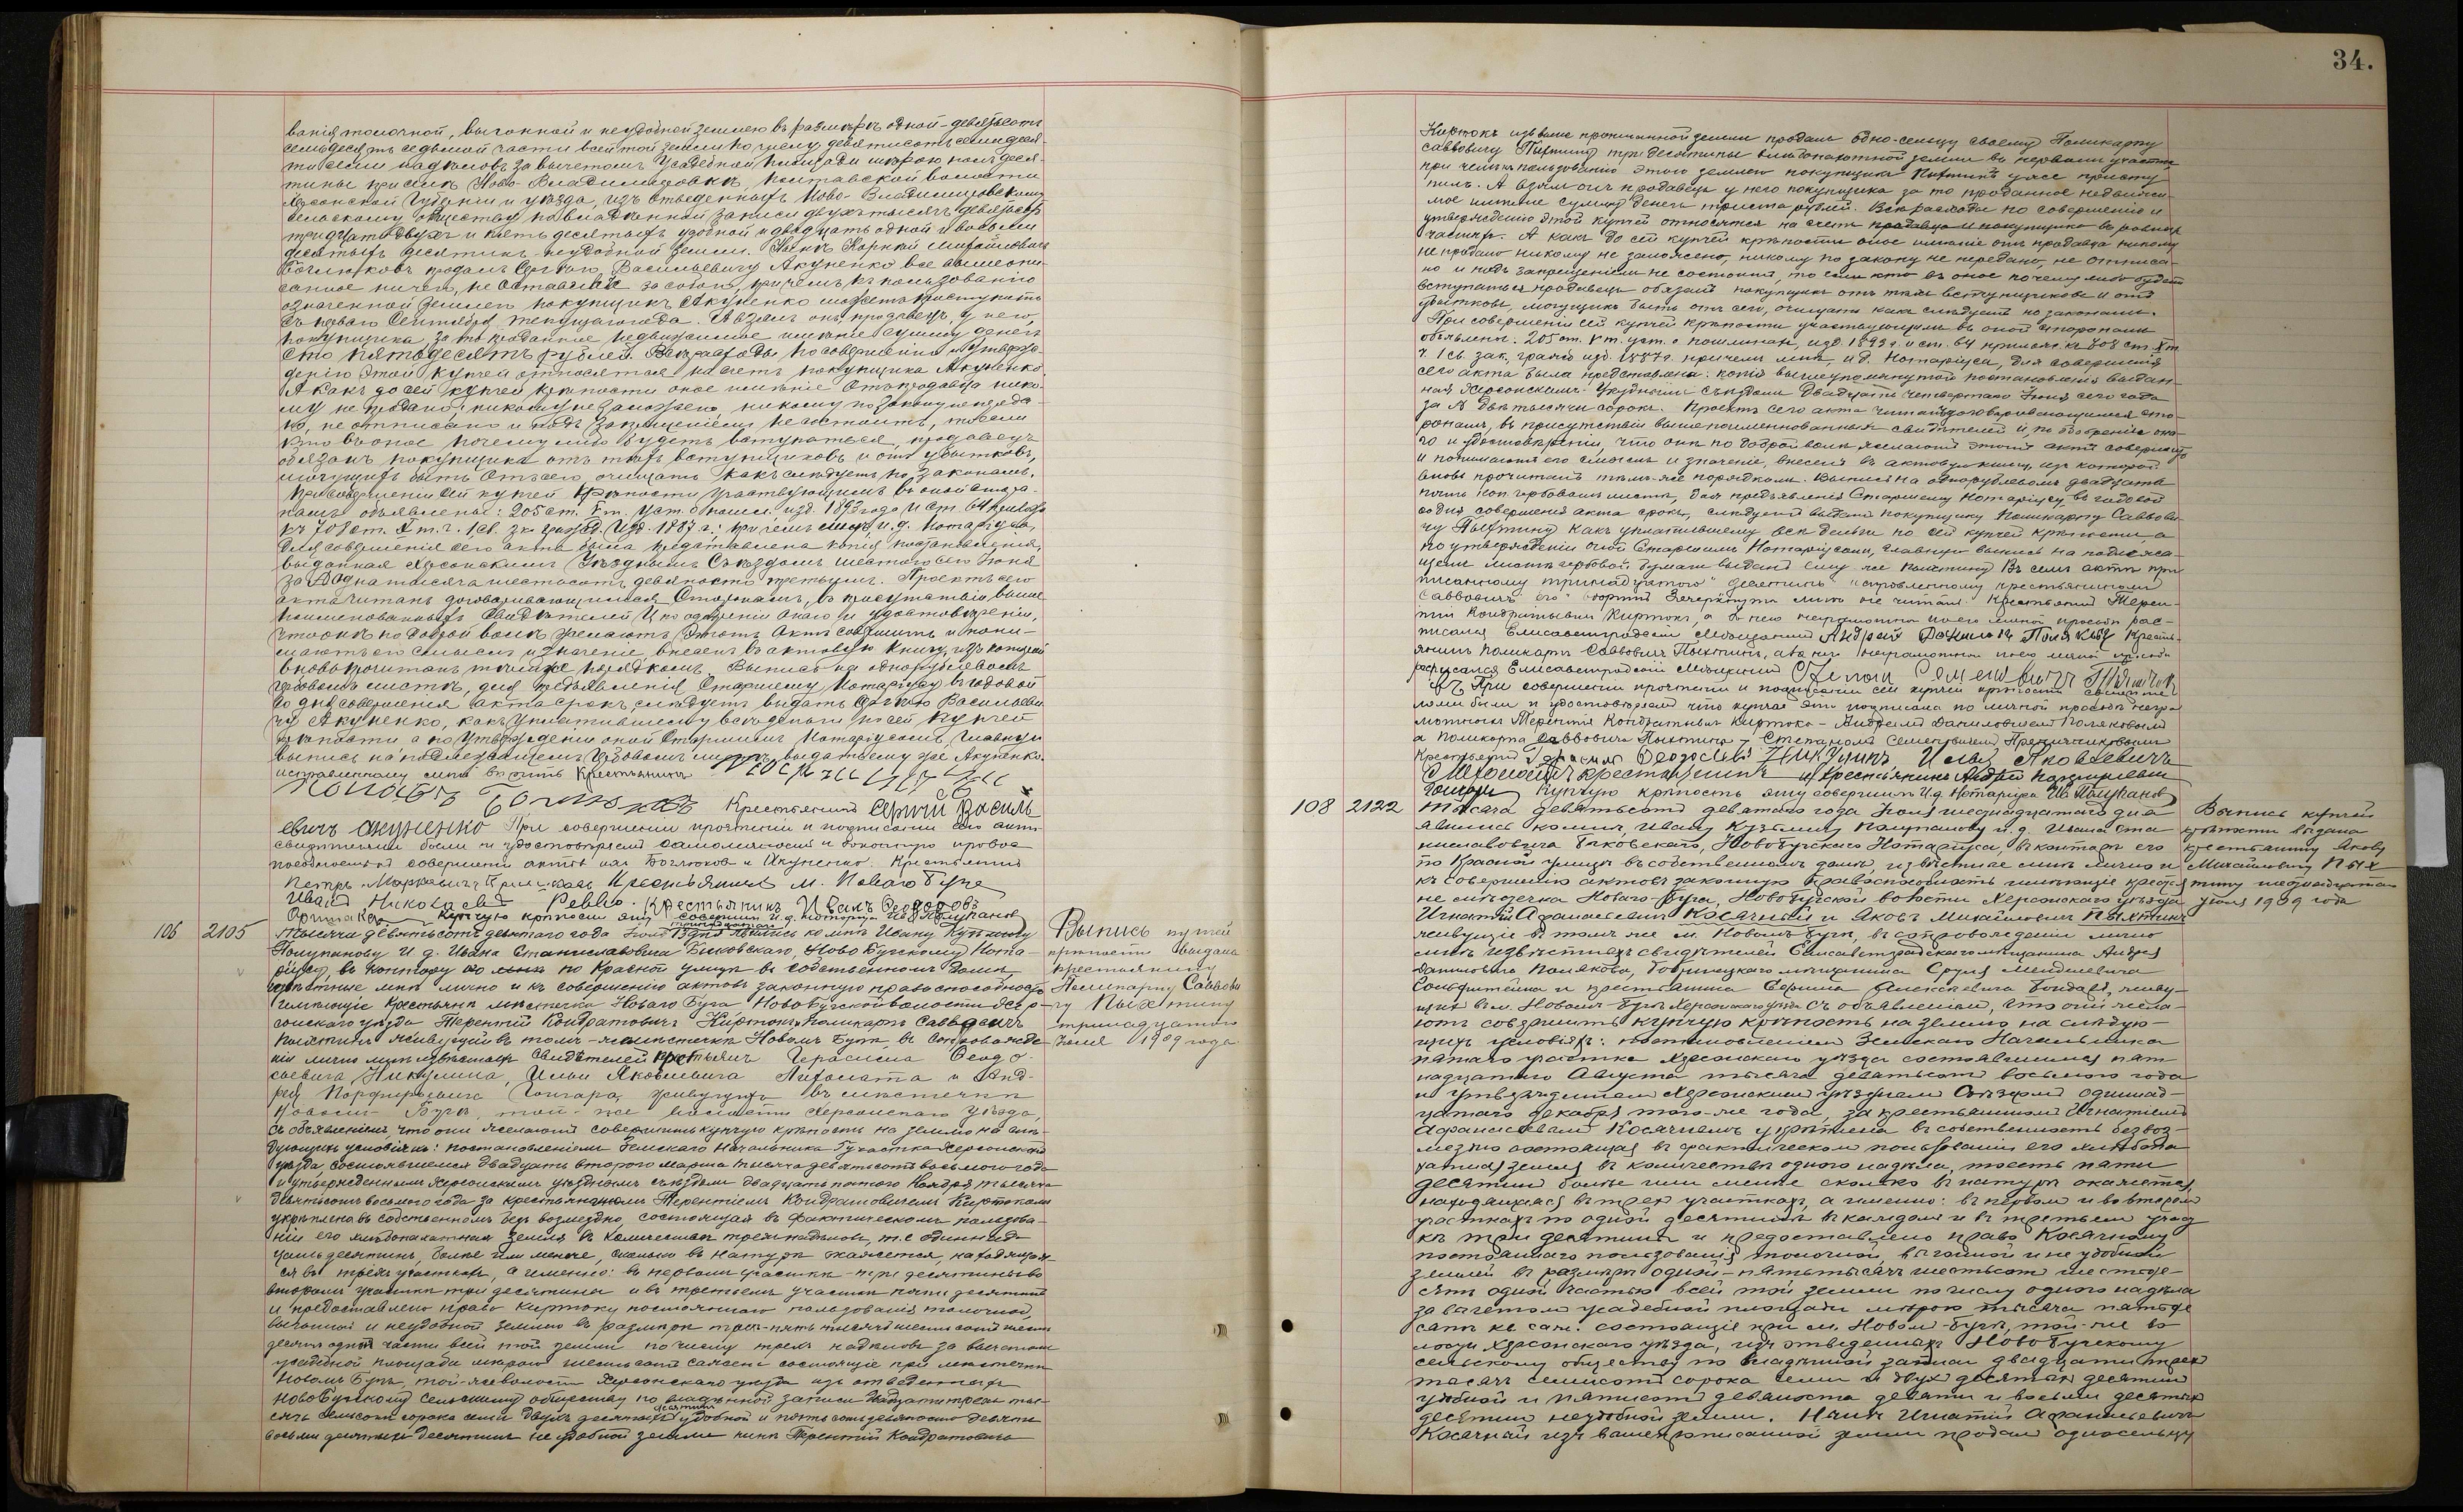 34.
ванія толочной, выгонной и неудобной землею въ размѣрѣ одной-девятьсотъ
семьдесятъ седьмой части всей той земли по числу девятисотъ семидеся-
ти семи надѣловъ за вычетомъ усадебной площади мѣрою полъ деся-
тины при селѣ Ново-Владиміровкѣ, Полтавской волости
Херсонской Губерніи и уѣзда, изъ отведенныхъ Ново-Владиміровскому
сельскому обществу по владѣнной записи двухъ тысячъ девятисотъ
тридцати двухъ и пять десятыхъ удобной и двадцать одной и восьми
десятыхъ десятинъ неудобной земли. Нынѣ
продалъ Сергѣю Васильевичу Акуненко все вышеопи-
санное ничего не оставляя за собою, причемъ къ пользованію
означенной землею покупщикъ Акуненко можетъ приступить
съ перваго Сентября текущаго года. А взялъ онъ, продавецъ, у него,
покупщика, за то проданное недвижимое имѣніе сумму денегъ
сто пятьдесятъ рублей. Всѣ расходы по совершенію и утверж-
денію этой купчей относятся на счетъ покупщика Акуненко.
А какъ до сей купчей крѣпости оное имѣніе отъ продавца нико-
му не продано, никому не заложено, никому по закону не переда-
но, не отписано и подъ запрещеніемъ не состоитъ, то если
кто въ оное почему либо будетъ вступаться, продавецъ
обязанъ покупщика отъ тѣхъ вступщиковъ и отъ убытковъ,
могущихъ быть отъ сего, очищать какъ слѣдуетъ по законамъ.
При совершеніи сей купчей крѣпости участвующимъ въ оной сторо-
намъ объявлены: 205 ст. V т. Уст. о пошл. изд. 1893 года и ст. 64 прилож.
къ 708 ст. X т. ч. 1 св. зак. гражд. изд. 1887 г.; причемъ мнѣ, и.д. Нотаріуса,
для совершенія сего акта была представлена копія постановленія,
выданная Херсонскимъ Уѣзднымъ Съѣздомъ шестого сего Іюня
за № одна тысяча шестьсотъ девяносто третьимъ. Проектъ сего
акта читанъ договаривающимся сторонамъ, въ присутствіи выше
поименованныхъ свидѣтелей и по одобреніи онаго и удостовѣреніи,
что они по доброй волѣ желаютъ этотъ актъ совершить и пони-
маютъ его смыслъ и значеніе, внесенъ въ актовую книгу, изъ которой
вновь прочитанъ тѣмъ же порядкомъ. Выпись на однорублевомъ
гербовомъ листѣ, для предъявленія Старшему Нотаріусу въ годовой
со дня совершенія акта срокъ, слѣдуетъ выдать Сергѣю Васильеви-
чу Акуненко, какъ уплатившему всѣ деньги по сей купчей
крѣпости а по утвержденіи оной Старшимъ Нотаріусомъ, главную
выпись на подлежащемъ гербовомъ листѣ выдать ему же Акуненко.
Крестьянинъ Сергій Василь
евичъ Акуненко При совершеніи прочтеніи и подписаніи сего акта
свидѣтелями были и удостовѣряемъ самоличность и законную право
способность совершить актъ
Крестьянинъ м. Новаго Буга
Иванъ Николаевъ Ревво. Крестьянинъ Иванъ
Купчую крѣпость эту совершилъ и.д. нотаріуса Ив. Полупановъ
106 2105 Тысяча девятьсотъ девятаго года Іюля 13 дня явились ко мнѣ Ивану Кузьмичу
Полупанову И. д. Ивана Станиславовича Быковскаго, Ново Бугскому Нота-
ріуса, въ контору его по Красной улицѣ въ собственномъ домѣ,
извѣстные мнѣ лично и къ совершенію актовъ законную правоспособность
имѣющіе крестьяне мѣстечка Новаго Буга Ново Бугской волости Хер-
сонскаго уѣзда Терентій Кондратовичъ Киртокъ и Поликарпъ Саввовичъ
Пыхтинъ живущіе въ томъ-же мѣстечкѣ Новомъ Бугѣ, въ сопровожде-
ніи лично мнѣ извѣстныхъ свидѣтелей крестьянъ Герасима Феодо-
сьевича Никулина, Ильи Яковлевича и Анд-
рея Порфирьевича Гончара, живущихъ въ мѣстечкѣ
Новомъ Бугѣ, той-же волости Херсонскаго уѣзда,
съ объявленіемъ, что они желаютъ совершить купчую крѣпость на землю на слѣ-
дующихъ условіяхъ: постановленіемъ Земскаго Начальника участка Херсонскаго
уѣзда состоявшемся двадцать второго Марта тысяча девятьсотъ восьмого года
и утвержденнымъ Херсонскимъ уѣзднымъ съѣздомъ двадцать пятаго Ноября тысяча
девятьсотъ восьмого года за крестьяниномъ Терентіемъ Кондратовичемъ Киртокомъ
укрѣплена въ собственность безвозмездно, состоящая въ фактическомъ пользова-
ніи его хлѣбопахотная земля въ количествѣ трехъ надѣловъ, т.е. одиннад-
цать десятинъ, болѣе или менѣе, сколько въ натурѣ окажется, находящая-
ся въ трехъ участкахъ, а именно: въ первомъ участкѣ - три десятины во
второмъ участкѣ три десятины и въ третьемъ участкѣ пять десятинъ
и предоставлено право Киртоку постояннаго пользованія толочной
выгонной и неудобной землею въ размѣрѣ трехъ-пять тысячъ шестисотъ шесть
десятъ одной части всей той земли по числу трехъ надѣловъ за вычетомъ
усадебной площади мѣрою шестьсотъ сажень состоящіе при мѣстечкѣ
Новомъ Бугѣ, той-же волости Херсонскаго уѣзда изъ отведенныхъ
Ново Бугскому сельскому обществу по владѣнной записи двадцати трехъ ты-
сячъ семисотъ сорока семи двухъ десятыхъ десятинъ удобной и пятьсотъ девяносто девяти
восьми десятыхъ десятинъ неудобной земли нынѣ Терентій Кондратовичъ
Выпись купчей
крѣпости выдана
крестьянину
Поликарпу Саввови
чу Пыхтину
тринадцатого
Іюля 1909 года
Киртокъ изъ выше прописанной земли продалъ одно-сельцу своему Поликарпу
Саввовичу Пыхтину три десятины хлѣбопахотной земли въ первомъ участкѣ
при чемъ къ пользованію этою землею покупщикъ Пыхтинъ уже присту
пилъ. А взялъ онъ продавецъ у него покупщика за то проданное недвижи-
мое имѣніе сумму денегъ триста рублей. Всѣ расходы по совершенію и
утвержденію этой купчей относятся на счетъ продавца и покупщика въ равной
части. А какъ до сей купчей крѣпости оное имѣніе отъ продавца никому
не продано никому не заложено, никому по закону не передано, не отписа-
но и подъ запрещеніемъ не состоитъ, то если кто въ оное почему либо будетъ
вступаться продавецъ обязанъ покупщика отъ тѣхъ вступщиковъ и отъ
убытковъ, могущихъ быть отъ сего, очищать какъ слѣдуетъ по законамъ.
При совершеніи сей купчей крѣпости участвующимъ въ оной сторонамъ
объявлены: 205 ст. V т. уст. о пошлинахъ, изд. 1893 г. и ст. 64 прилож. къ 708 ст. X т.
ч. 1 св. зак. гражд. изд. 1887 г. причемъ мнѣ, и.д. Нотаріуса, для совершенія
сего акта была представлена: копія вышеупомянутой постановленія выдан-
ная Херсонскимъ Уѣзднымъ съѣздомъ двадцать четвертаго Іюня сего года
за № двѣ тысячи сорокъ. Проектъ сего акта читанъ договаривающимся сто-
ронамъ, въ присутствіи вышепоименованныхъ свидѣтелей и, по одобреніи она-
го и удостовѣреніи, что они по доброй волѣ желаютъ этотъ актъ совершить
и понимаютъ его смыслъ и значеніе, внесенъ въ актовую книгу, изъ которой
вновь прочитанъ тѣмъ-же порядкомъ. Выпись на однорублевомъ двадцати
пяти коп. гербовомъ листѣ, для предъявленія Старшему Нотаріусу въ годовой
со дня совершенія акта срокъ, слѣдуетъ выдать покупщику Поликарпу Саввови
чу Пыхтину какъ уплатившему всѣ деньги по сей купчей крѣпости, а
по утвержденіи оной Старшимъ Нотаріусомъ, главную выпись на подлежа-
щемъ листѣ гербовой бумаги выдать ему же Пыхтину Въ семъ актѣ при
писанному "тринадцатого" "десятинъ" исправленному
Зачеркнутое не читать. Крестьянинъ Терен-
тій Кондратьевичъ Киртокъ, а за него неграмотнаго по его личной просьбѣ рас-
писался Елисаветградскій мѣщанинъ Андрей Даниловъ Поляковъ Кресть-
янинъ Поликарпъ Саввовичъ Пыхтинъ, а за него неграмотнаго по его личной просьбѣ
расписался Елисаветградскій мѣщанинъ Степанъ Семеновичъ
При совершеніи прочтеніи и подписаніи сей купчей крѣпости свидѣте-
лями были и удостовѣряемъ что купчая эта подписана по личной просьбѣ негра-
мотныхъ Терентія Кондратьевича Киртока - Андреемъ Даниловичемъ Поляковымъ
а Поликарпа Саввовича Пыхтина - Степаномъ Семеновичемъ
Крестьянинъ Герасимъ Феодосіевъ Никулинъ, Илья Яковлевичъ
крестьянинъ и Крестьянинъ Андрей Порфирьевичъ
Гончаръ Купчую крѣпость эту совершилъ И.д. Нотаріуса Ив. Полупановъ
108 2122 Тысяча девятьсотъ девятаго года Іюля шестнадцатого дня
явились ко мнѣ, Ивану Кузьмичу Полупанову и.д. Ивана Ста-
ниславовича Быковскаго, НовоБугскаго Нотаріуса, въ контору его
по Красной улицѣ въ собственномъ домѣ, извѣстные мнѣ лично и
къ совершенію актовъ законную правоспособность имѣющіе кресть
яне мѣстечка Новаго-Буга, НовоБугской волости Херсонскаго уѣзда
Игнатій Афанасьевичъ Косячный и Яковъ Михайловичъ Пыхтинъ
живущіе въ томъ же м. Новомъ-Бугѣ, въ сопровожденіи лично
мнѣ извѣстныхъ свидѣтелей Елисаветградскаго мѣщанина Андрея
Даниловича Полякова, Бобринецкаго мѣщанина Сруля Менделевича
и крестьянина Алексѣевича Бондаря, живу-
щихъ въ м. Новомъ-Бугѣ Херсонскаго уѣзда съ объявленіемъ, что они жела-
ютъ совершить купчую крѣпость на землю на слѣдую-
щихъ условіяхъ: постановленіемъ Земскаго Начальника
пятаго участка Херсонскаго уѣзда состоявшимся пят-
надцатаго Августа тысяча девятьсотъ восьмого года
и утвержденнымъ Херсонскимъ уѣзднымъ Съѣздомъ одиннад-
цатаго декабря того-же года, за крестьяниномъ Игнатіемъ
Афанасьевымъ Косячнымъ укрѣплена въ собственность безвоз-
мездно состоящая въ фактическомъ пользованіи его хлѣбопа-
хатная земля въ количествѣ одного надѣла, то есть пяти
десятинъ болѣе или менѣе сколько въ натурѣ окажется,
находящаяся въ трехъ участкахъ, а именно: въ первомъ и во второмъ
участкахъ по одной десятинѣ въ каждомъ и въ третьемъ участ
кѣ три десятины и предоставлено право Косячному
постояннаго пользованія толочной, выгонной и неудобной
землей въ размѣрѣ одной-пять тысячъ шестьсотъ шестьде-
сятъ одной частью всей той земли по числу одного надѣла
за вычетомъ усадебной площади мѣрою тысяча пятьде
сятъ кв. саж. состоящіе при м. Новомъ-Бугѣ, той-же во
лости Херсонскаго уѣзда, изъ отведенныхъ НовоБугскому
сельскому обществу по владѣнной записи двадцати трехъ
тысячъ семисотъ сорока семи и двухъ десятыхъ десятинъ
удобной и пятисотъ девяноста девяти и восьми десятыхъ
десятинъ неудобной земли. Нынѣ Игнатій Афанасьевичъ
Косячный изъ вышепрописанной земли продалъ односельцу
Выпись купчей
крѣпости выдана
крестьянину Якову
Михайловичу Пых
тину шестнадцатаго
Іюля 1909 года